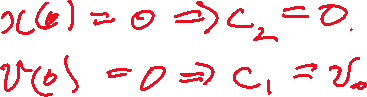 x(0) = 0 ⇒ C₂ = 0.
v(0) = 0 ⇒ C₁ = v₀